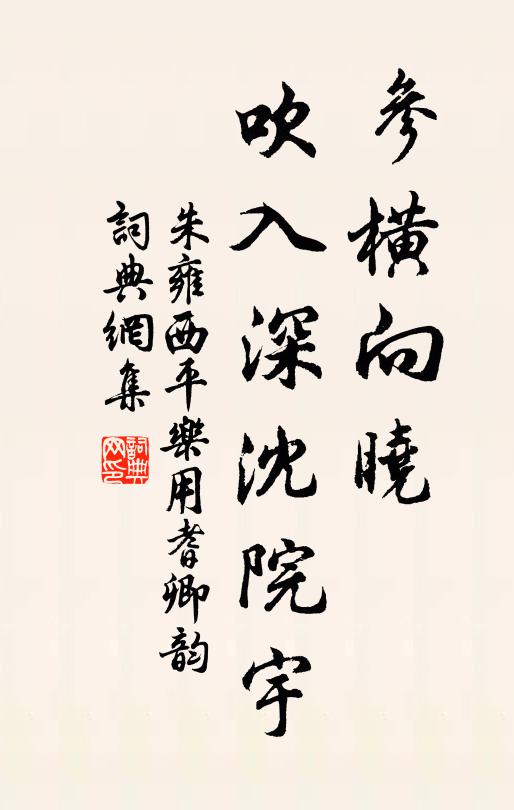 參橫向曉
吹入深沈院宇
朱雍西平樂用耆卿韵
詞典網集
詞典网印